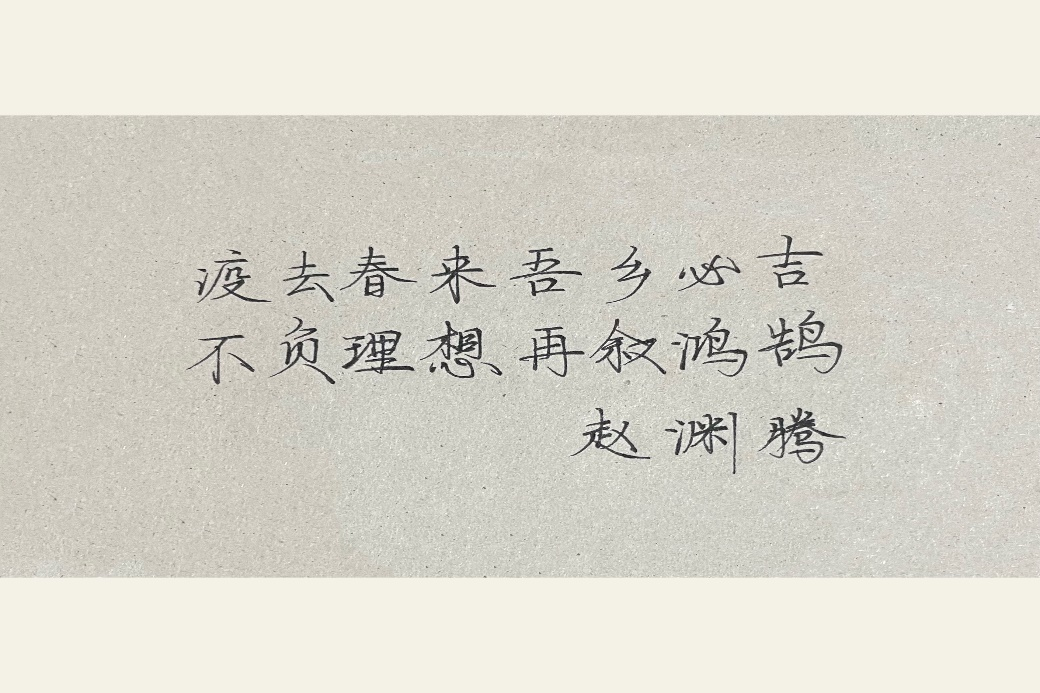 疫去春来吾乡必吉
不负理想再叙鸿鹄
赵渊腾